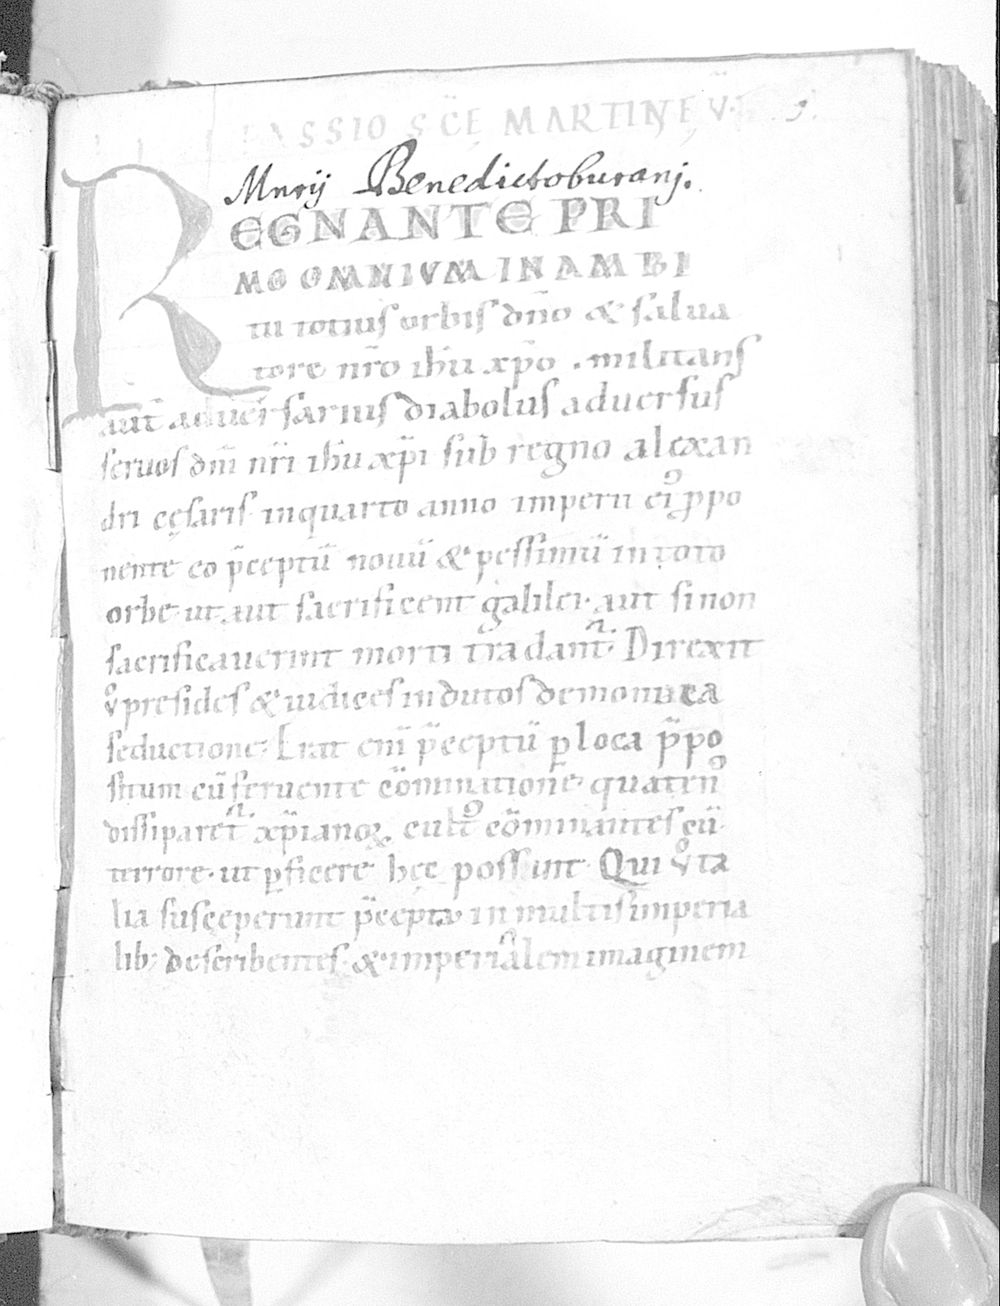 PASSIO SC̄Ę MARTINĘ V̄· 9.
Mnrij Benedictoburanj.
REGNANTE PRI
MO OMNIVM IN AMBI
tu totius orbis dn̄o & salua
tore nr̄o ih̄u xp̄o . militans
aut̄ aduersarius diabolus aduersus
seruos dn̄i nr̄i ih̄u xp̄i sub̄ regno alexan
dri cęsaris· inquarto anno imperii ei᷒ ꝓpo
nente eo p̄ceptū nouū & pessimū in toto
orbe· ut aut sacrificent galilei· aut si non
sacrificauerint morti tradant᷑· Direxit
v̊ presides & iudices indutos demoniaca
seductione· Erat eni̅ p̄ceptū ꝑ loca p̄po
situm cū feruente cōminatione· quaten᷒
dissiparet᷑ xp̄ianoꝝ cult᷒ cōminantes cū
terrore· ut ꝑficere hęc possint· Qui v̊ ta
lia susceperunt p̄cepta· in multis imperia
lib; describentes· & imperialem imaginem